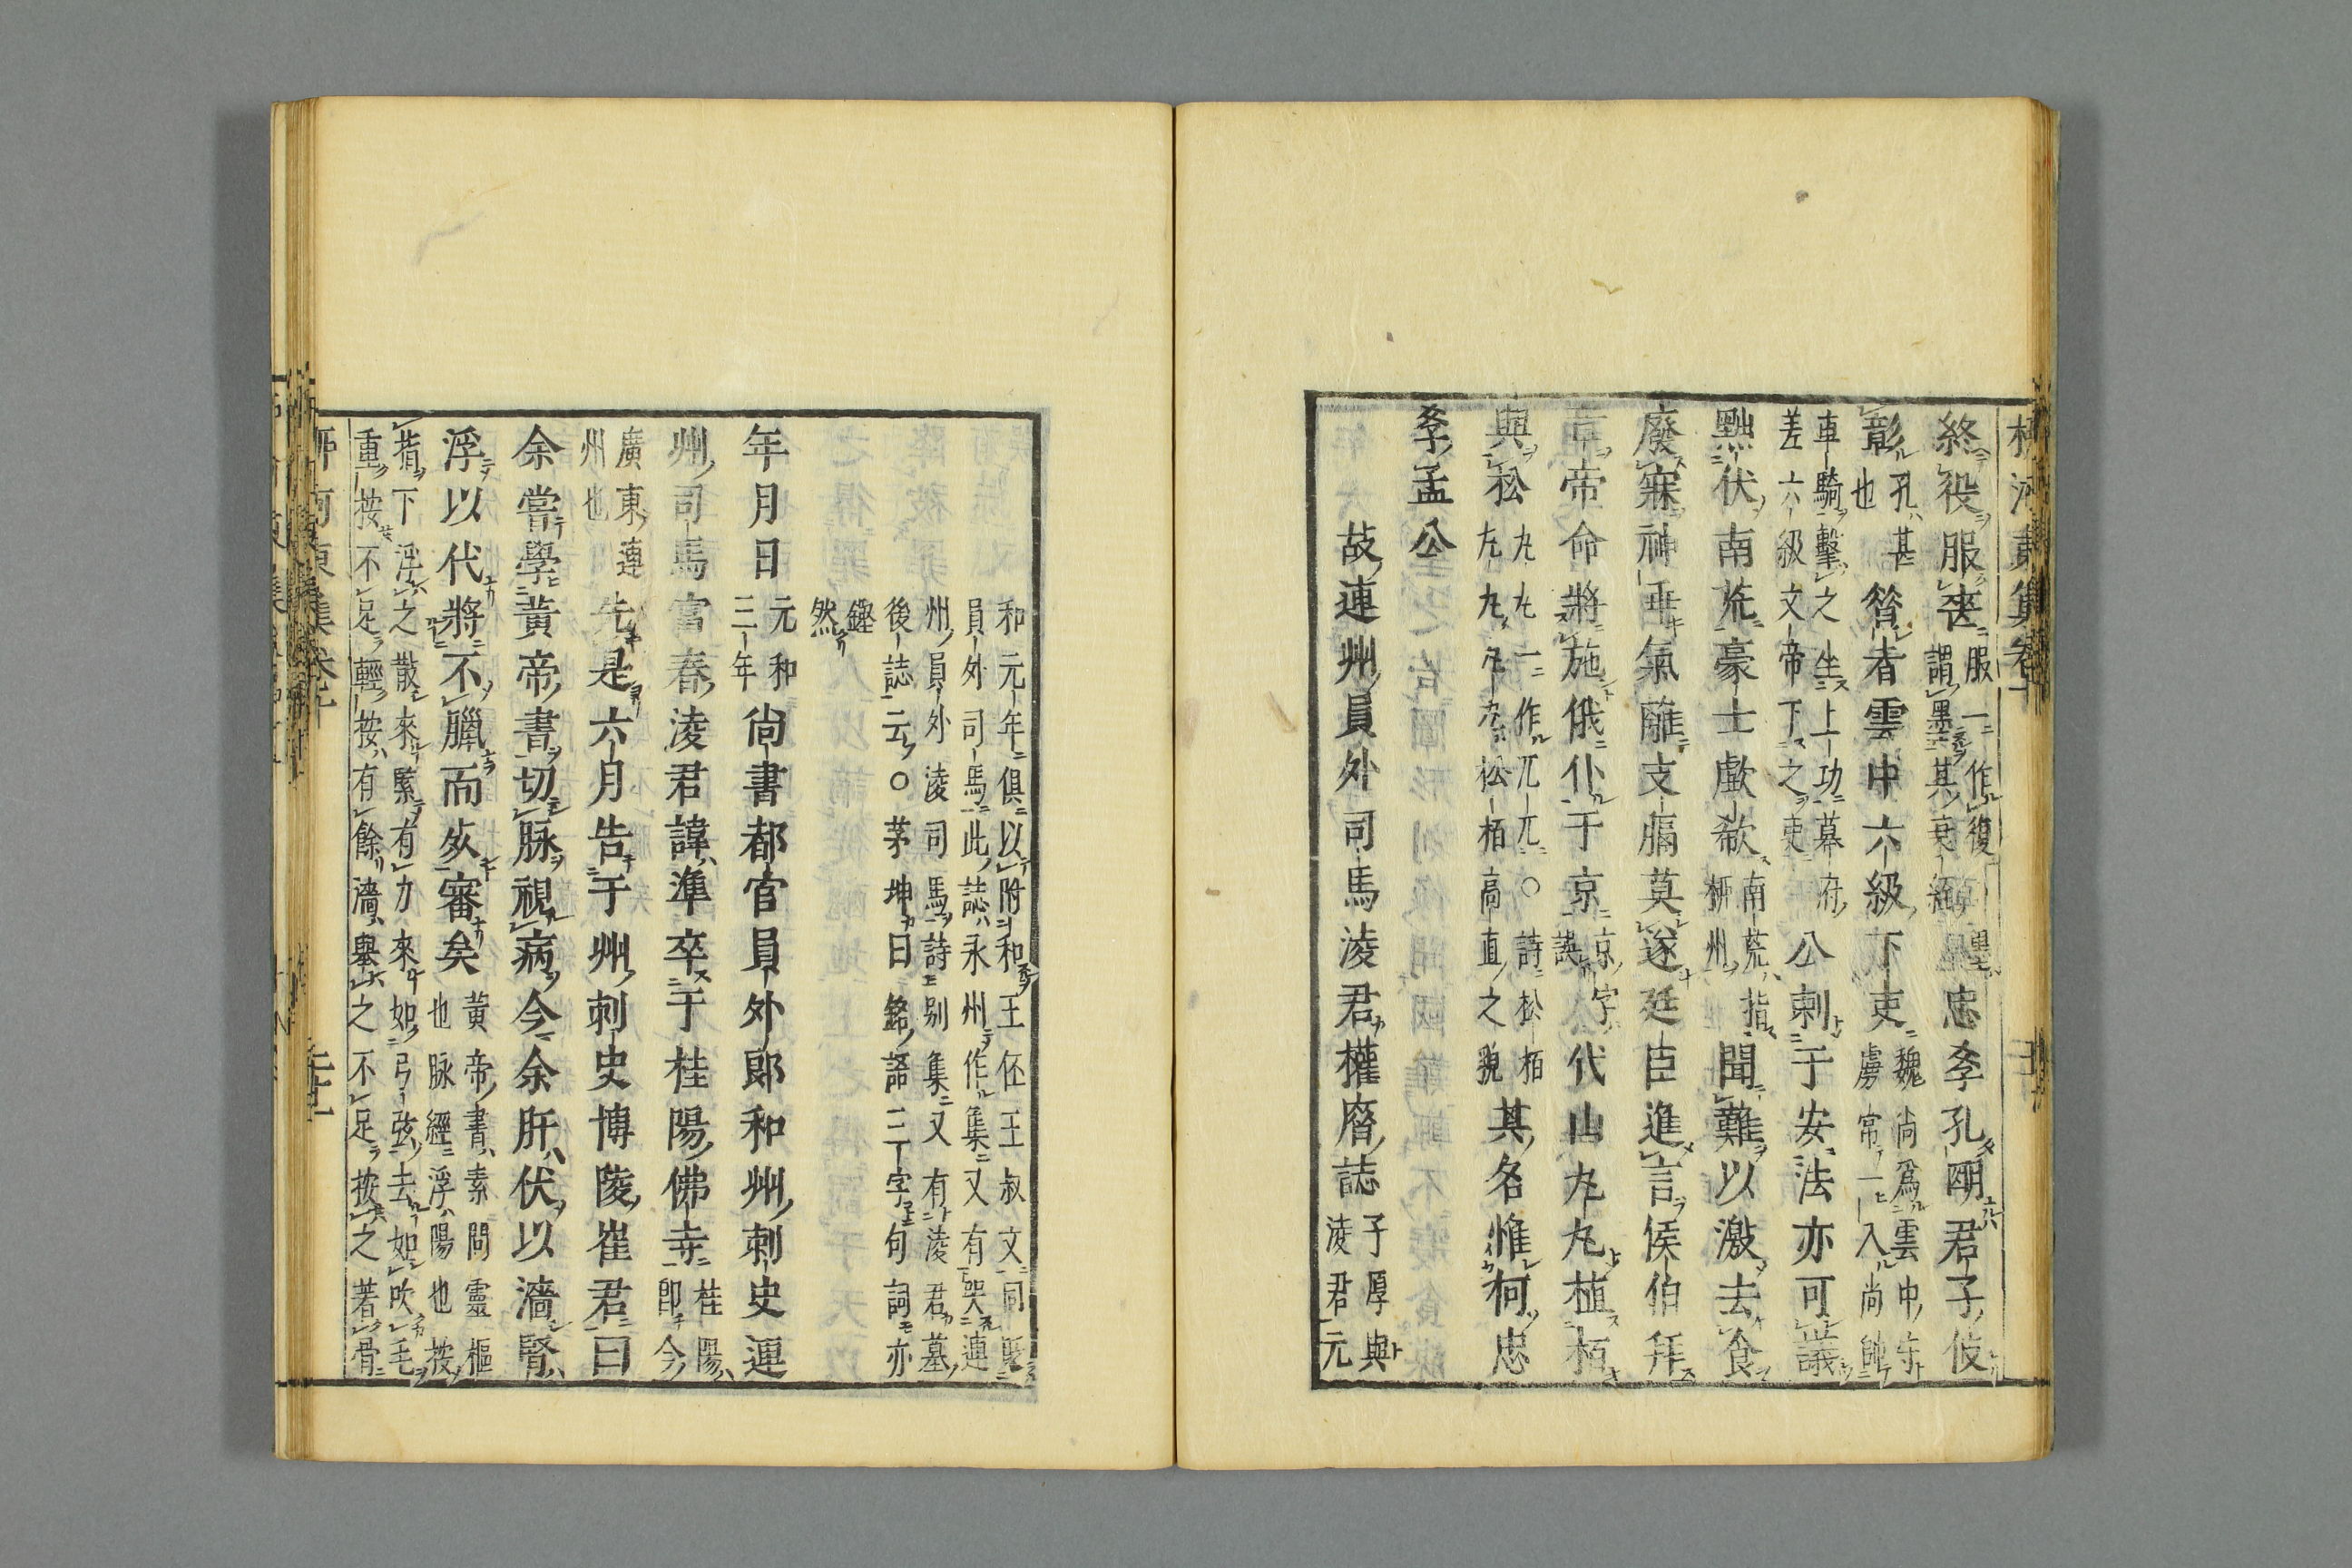 柳河東集卷十
終役服喪服一作復謂墨其衰絰墨忠孝孔明君子伎
彰孔甚也簪者雲中六級下吏魏尚爲雲中守虜常一入尚帥
車騎擊之坐上功幕府差六級文帝下之吏公刺于安法亦可議
黜伏南荒豪士歔欷南荒指柳州聞難以激去食
廢寐神乖氣離支膈莫遂廷臣進言侯伯拜
章帝命將施俄仆于京京字誤代山丸丸植栢
與松丸丸一作兀兀○詩松栢丸丸丸丸松栢高直之貌其名惟何忠
孝孟公
故連州員外司馬淩君權厝誌子厚與淩君元
和元年俱以附和王伾王叔文同貶
員外司馬此誌永州作集又有哭連
州員外淩司馬詩別集又有淩君墓
後誌云○茅坤曰銘諦三字句詞亦
鏗然
年月日元和三年尚書都官員外郎和州刺史連
州司馬富春淩君諱準卒于桂陽佛寺桂陽即今
廣東連州也先是六月告于州刺史博陵崔君曰
余嘗學黃帝書切脉視病今余肝伏以濇腎
浮以代將不臘而死審矣黃帝書素問靈樞也脉經浮陽也按
指下浮之散來緊有力來如弓弦去如吹毛
重按不足輕按有餘濇舉之不足按之著骨